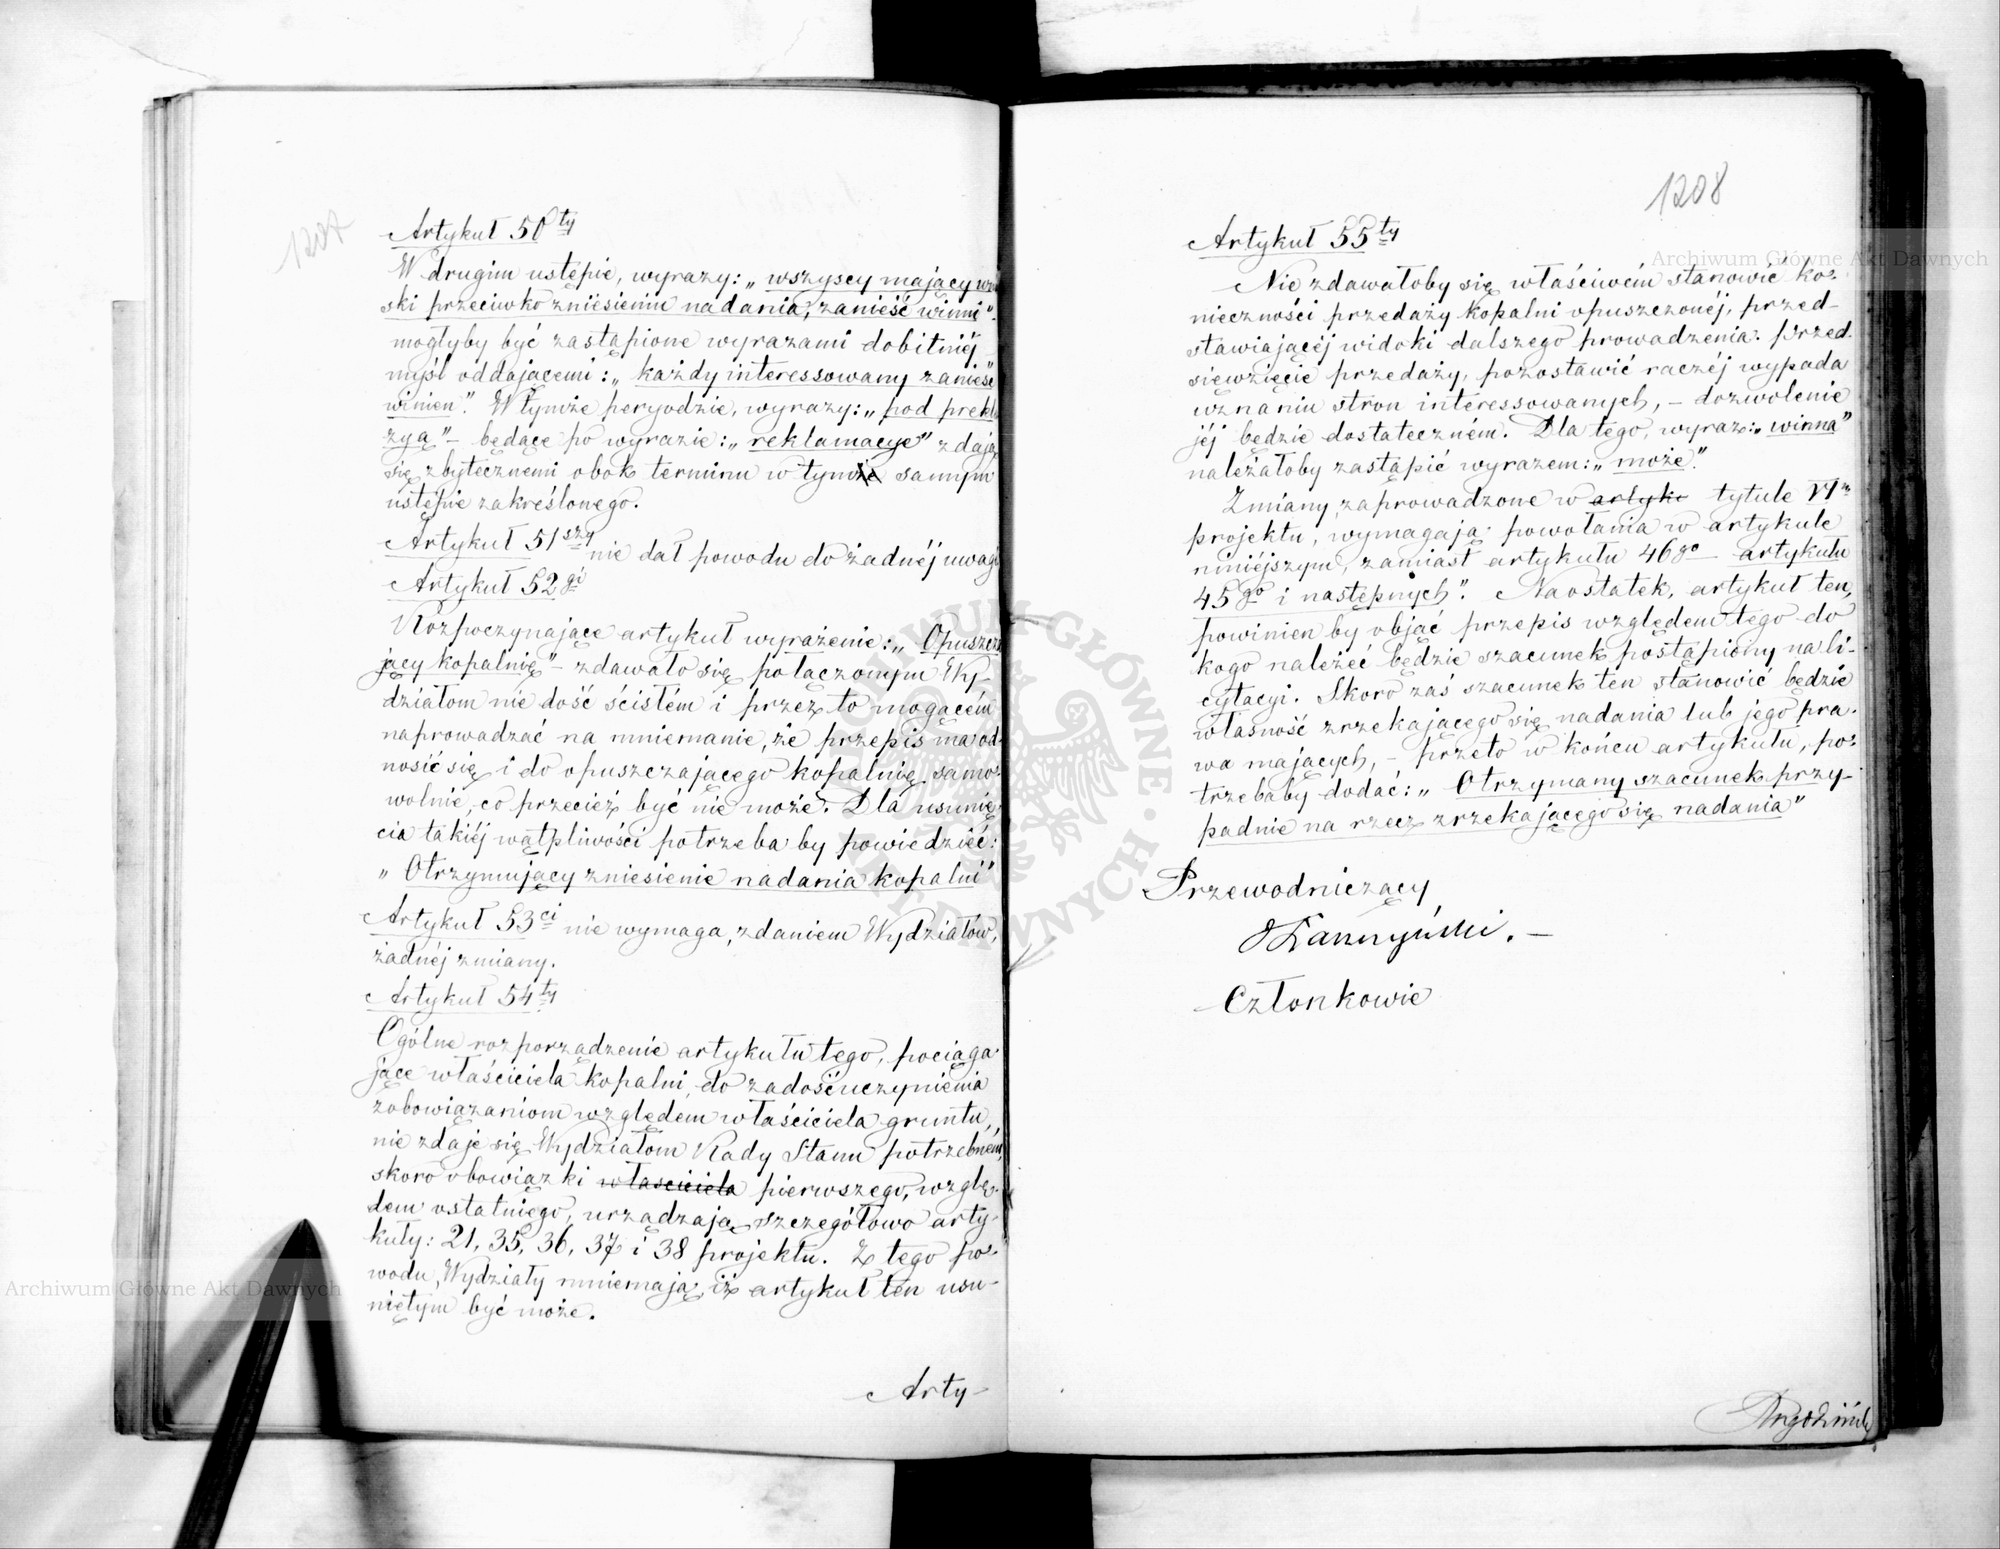 1207
Artykuł 50ty
W drugim ustępie, wyrazy: „wszyscy mający wnio
ski przeciwko zniesieniu nadania, zanieść winni"
mogłyby być zastąpione wyrazami dobitniéj
myśl oddającemi: „każdy interessowany zanieść
winien". W tymże peryodzie, wyrazy: „pod preklu
zyą" – będące po wyrazie: „reklamacye" zdają
się zbytecznemi obok terminu w tymże samym
ustępie zakreślonego.
Artykuł 51szy nie dał powodu do żadnéj uwagi
Artykuł 52gi
Rozpoczynające artykuł wyrażenie: „Opuszcza
jący kopalnię" – zdawało się połączonym Wy-
działom nie dość ścisłém i przez to mogącém
naprowadzać na mniemanie, że przepis ma od-
nosić się i do opuszczającego kopalnię samo-
wolnie, co przecież być nie może. Dla usunię-
cia takiéj wątpliwości potrzeba by powiedzieć:
„Otrzymujący zniesienie nadania kopalni"
Artykuł 53ci nie wymaga, zdaniem Wydziałów,
żadnéj zmiany.
Artykuł 54ty
Ogólne rozporządzenie artykułu tego, pociąga-
jące właściciela kopalni, do zadośćuczynienia
zobowiązaniom względem właściciela gruntu,
nie zdaje się Wydziałom Rady Stanu potrzebném,
skoro obowiązki właściciela pierwszego, wzglę-
dem ostatniego, urządzają szczegółowo arty-
kuły: 21, 35, 36, 37 i 38 projektu. Z tego po-
wodu, Wydziały mniemają, iż artykuł ten usu-
niętym być może.
Arty-
1208
Artykuł 55ty
Nie zdawałoby się właściwém stanowić ko-
nieczności przedaży kopalni opuszczonéj, przed-
stawiającéj widoki dalszego prowadzenia. Przed-
siewzięcie przedaży, pozostawić raczéj wypada
uznaniu stron interessowanych, – dozwolenie
jéj będzie dostateczném. Dla tego, wyraz: „winna"
należałoby zastąpić wyrazem: „może".
Zmiany zaprowadzone w artyk tytule VIm
projektu, wymagają powołania w artykule
niniéjszym, zamiast artykułu 46go – artykułu
45go i następnych". Naostatek, artykuł ten,
powinien by objąć przepis względem tego do
kogo należeć będzie szacunek postąpiony na li-
cytacyi. Skoro zaś szacunek ten stanowić będzie
własność zrzekającego się nadania lub jego pra-
wa mających, – przeto w końcu artykułu, po-
trzebaby dodać: „Otrzymany szacunek przy-
padnie na rzecz zrzekającego się nadania"
Przewodniczący
Członkowie
Archiwum Główne Akt Dawnych
Archiwum Główne Akt Dawnych
ARCHIWUM GŁÓWNE AKT DAWNYCH